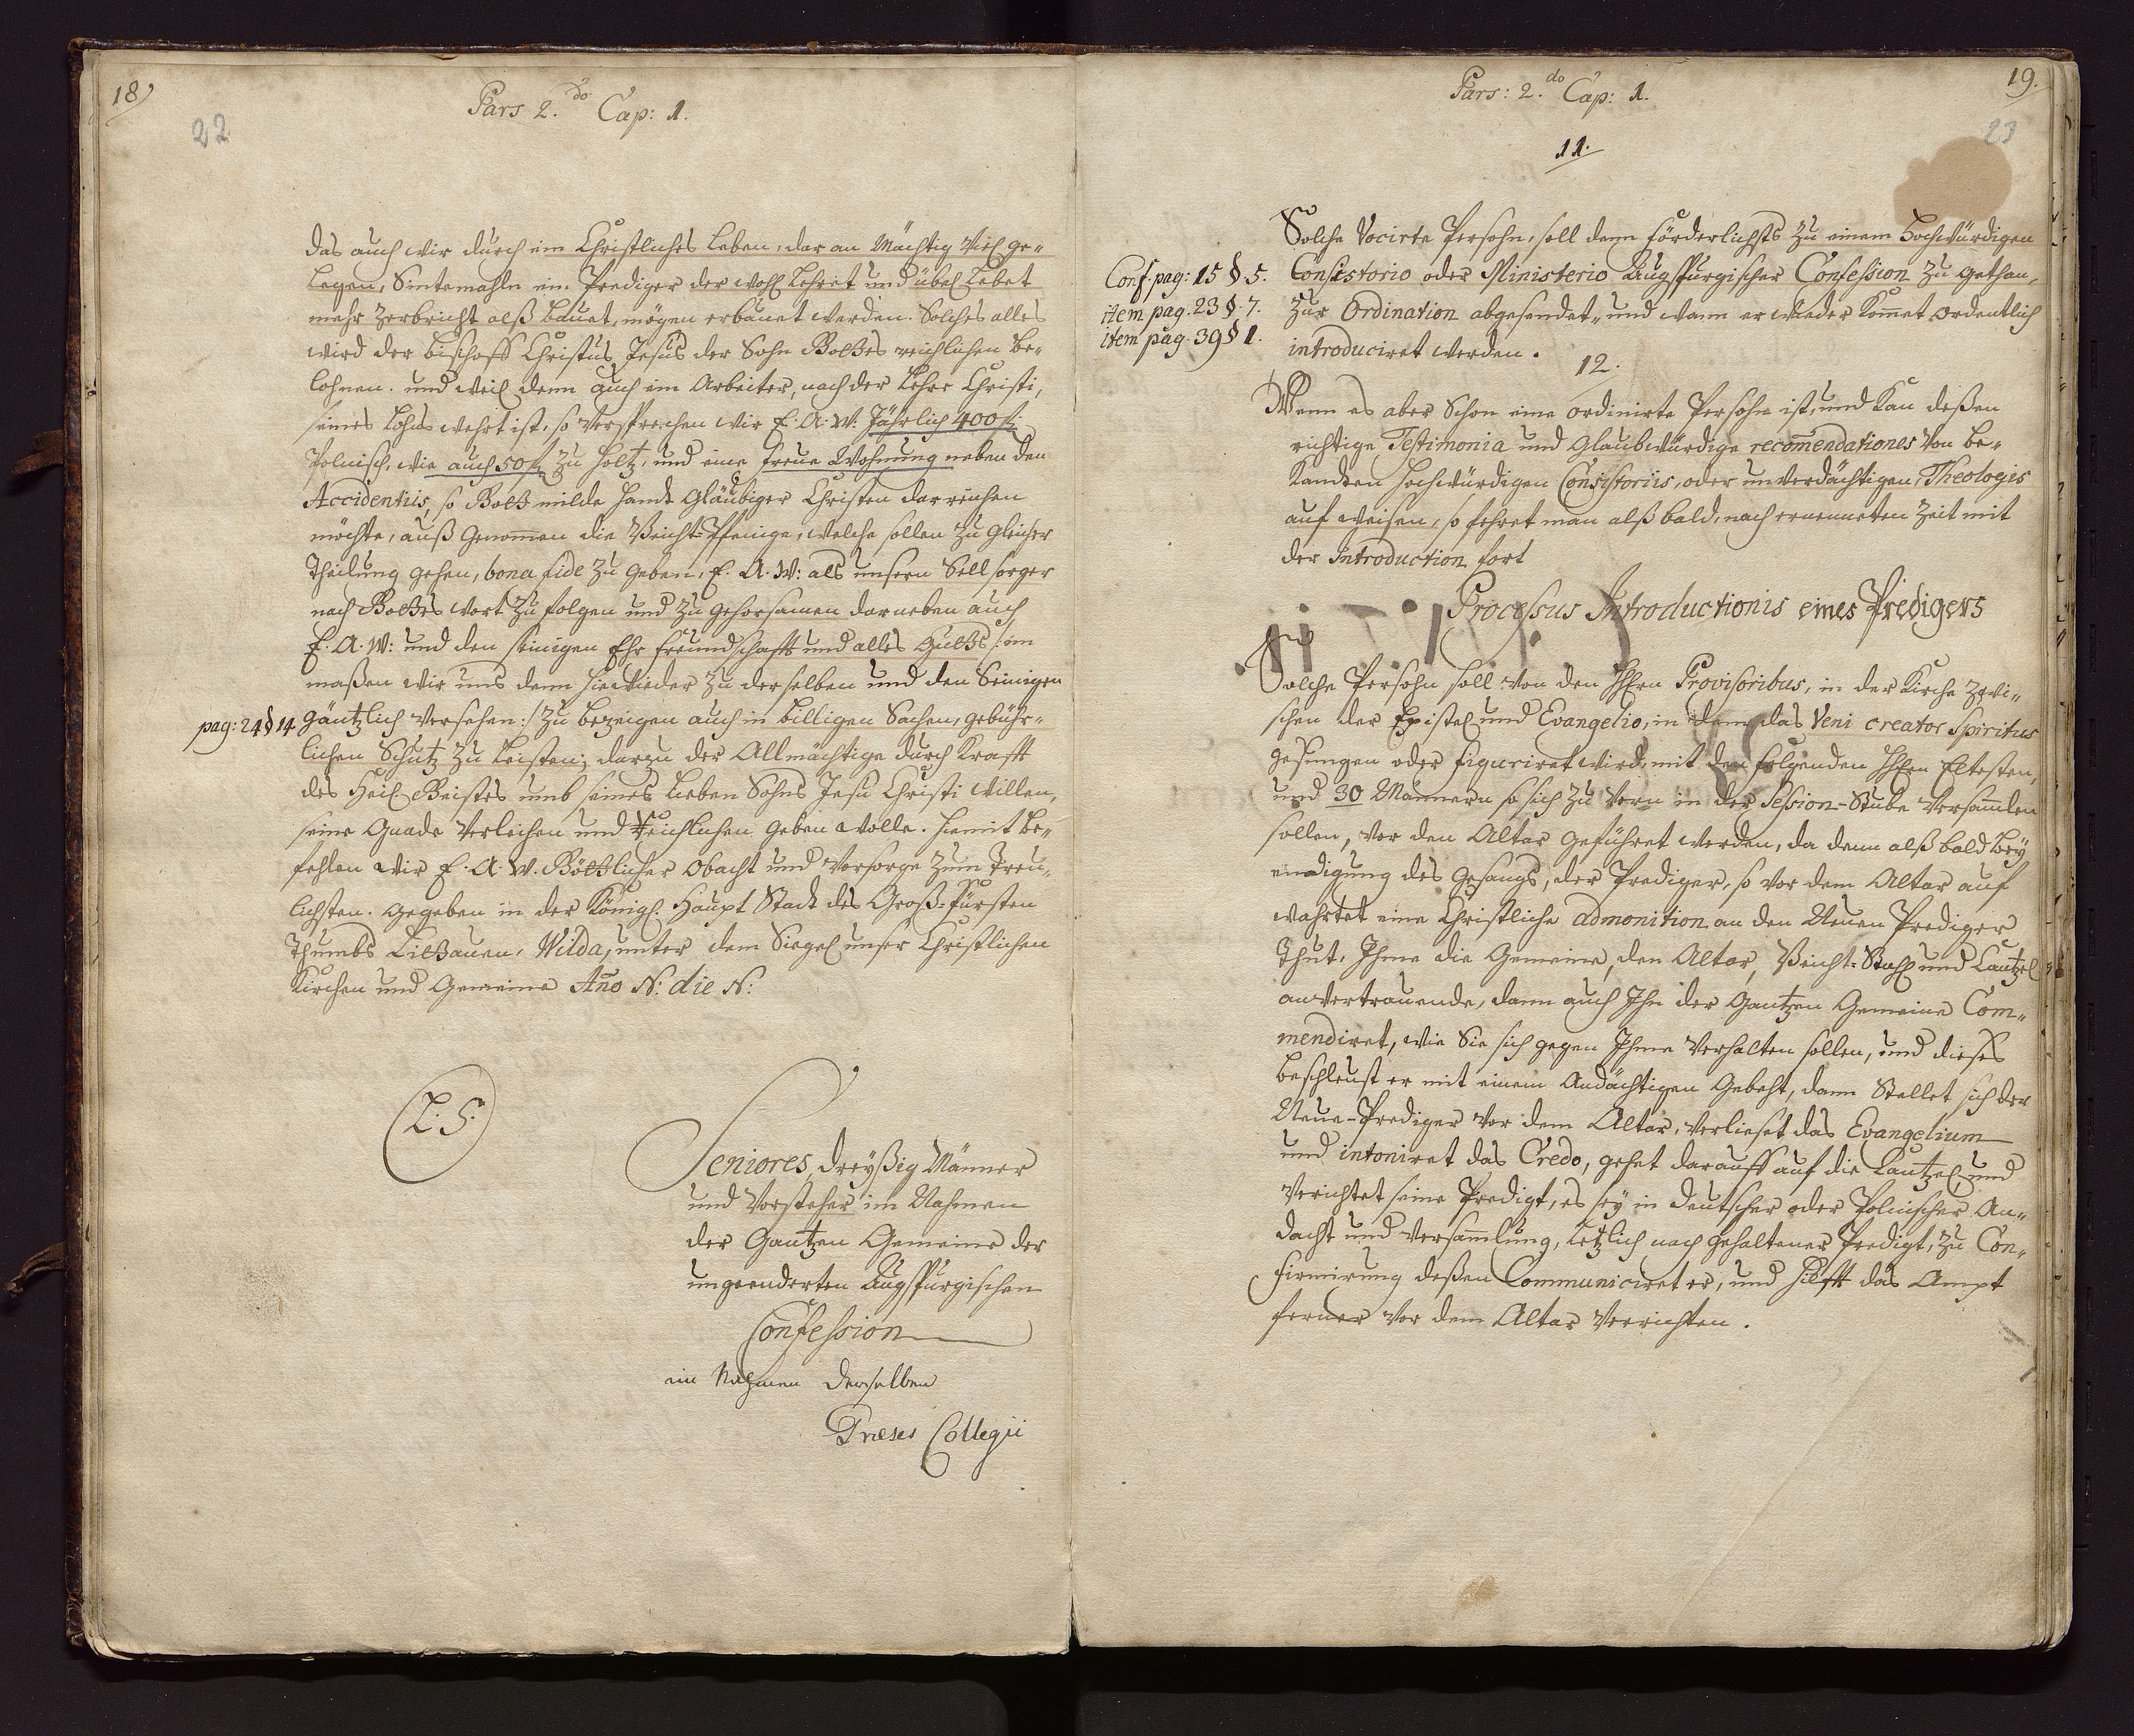 18)
22
Pars 2.do Cap: 1.
das auch wir durch ein Christliches Leben, dar an Mächtig Viel ge-
Legen, Sintemahln ein Prediger der wohl Lehret und übel Lebet
mehr zerbricht alß bauet, mögen erbauet werden. Solches alles
wird der Bischoff Christus Jesus der Sohn Gottes reichlichen be-
lohnen. und weil denn auch ein Arbeiter, nach der Lehre Christi,
seines Lohns wehrt ist, so versprechen wir E. A. W: Jährlich 400 fl
Polnisch, wie auch 50 fl zu Holtz, und eine freue Wohnung neben den
Accidentiis, so Gott milde Handt Gläubiger Christen darreichen
möchte, auß genom̄en die Beicht-Pfenige, welche sollen zu gleicher
Theilung gehen, bona fide zu geben, E. A. W: als unsern Sellsorger
nach Gottes Wort zu folgen und zu gehorsamen darneben auch
E. A. W: und den seinigen Ehr freundschafft und alles guttes /: im
maßen wir uns denn hinwieder zu derselben und den Seinigen
pag: 24 § 14 gäntzlich versehen :/ zu bezeigen auch in billigen Sachen, gebühr-
lichen Schutz zu Leisten; darzu der Allmächtige durch Krafft
des Heil. Geistes umb seines Lieben Sohns Jesu Christi willen,
seine Gnade Verleihen und Reichlichen geben wolle. Hiemit be-
fehlen wir E. A. W. Göttlicher Obacht und Vorsorge zum Treu-
lichsten. Gegeben in der Königl. Haupt Stadt des Groß-Fürsten
Thumbs Litthauen, Wilda, unter dem Siegel unser Christlichen
Kirchen und Gemeine Año N: die N:
(L. S.)
Seniores, dreyßig Männer
und Vorsteher im Nahmen
der Gantzen Gemeine der
ungeenderten Augspurgischen
Confession
im Nahmen derselben
Preses Collegii
19.
23
Pars: 2.do Cap: 1.
11.
Solche Vocirte Persohn, soll denn förderlichsts zu einem Hochwürdigen
Conf. pag: 15 § 5. Consistorio oder Ministerio Augspurgischer Confession zu gethan,
item pag. 23 §. 7. zur Ordination abgesendet, und wann er wieder Kom̄et ordentlich
item pag. 39 § 1. introduciret werden.
12.
Wenn es aber Schon eine ordinirte Persohn ist, und Kan deßen
richtige Testimonia und Glaubwürdige recom̄endationes von be-
Kandten Hochwürdigen Consistoriis, oder unverdächtigen Theologis
auf weisen, so fehret man alß bald, nach ernenneten Zeit mit
der Introduction fort
Processus Introductionis eines Predigers
Solche Persohn soll von den HhErn Provisoribus, in der Kirche zwi-
schen der Epistel und Evangelio, in dem das Veni creator spiritus
gesungen oder figuriret wird, mit den folgenden HhErn Eltesten,
und 30 Männern so sich zu vorn in der Session-Stube versam̄len
sollen, vor den Altar geführet werden, da denn alß bald bey
endigung des gesangs, der Prediger, so vor dem Altar auf
wahrtet eine Christliche admonition an den Neuen Prediger
Thut, Ihme die Gemeine, den Altar, Beicht-Stuhl und Cantzel
anvertrauende, dann auch Ihn der Gantzen Gemeine Com-
mendiret, wie Sie sich gegen Ihme Verhalten sollen, und dieses
beschleust er mit einem Andächtigen Gebeht, dann Stellet sich der
Neue-Prediger vor dem Altar, verlieset das Evangelium
und intoniret das Credo, gehet darauff auf die Cantzel und
verichtet seine Predigt, es sey in deutscher oder Polnischer An-
dacht und Versam̄lung, Letzlich nach gehaltener Predigt, zu Con-
firmirung deßen Communiciret er, und hilfft das Ampt
ferner vor dem Altar Verrichten.